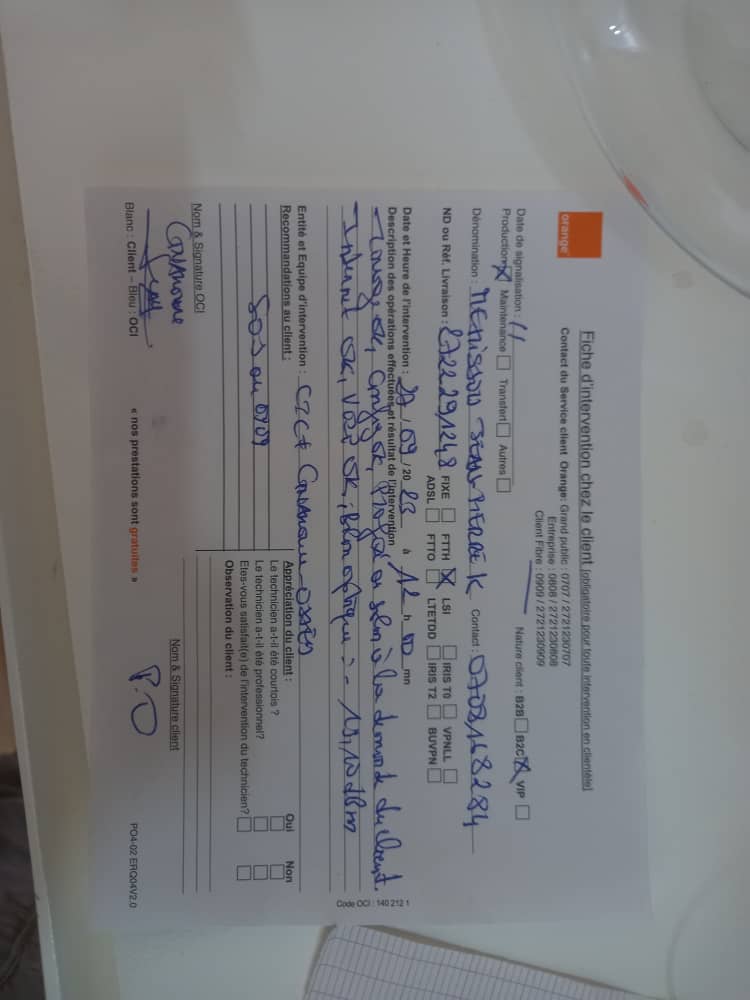 orange
Fiche d'intervention chez le client (obligatoire pour toute intervention en clientèle)
Contact du Service client Orange: Grand public : 0707 / 2721230707
Entreprise : 0808 / 2721230808
Client Fibre : 0909 / 2721230909
Date de signalisation : / / Nature client : B2B B2C X VIP
Production X Maintenance Transfert Autres
Dénomination : NEMISSON JEAN Contact : 0708168284
ND ou Réf. Livraison : 2722291248 FIXE FTTH X LSI IRIS T0 VPNLL
ADSL FTTO LTETDD IRIS T2 BUVPN
Date et Heure de l'intervention : 27 / 09 / 20 23 à 12 h 00 mn
Description des opérations effectuées et résultat de l'intervention
- OK, OK, selon à la demande du client.
- Internet OK, VOIP OK, optique : - 19,10 dBm
Entité et Equipe d'intervention :
Recommandations au client :
SOS au 0709
Appréciation du client : Oui Non
Le technicien a-t-il été courtois ?
Le technicien a-t-il été professionnel?
Etes-vous satisfait(e) de l'intervention du technicien?
Observation du client :
Nom & Signature OCI
Nom & Signature client
P.O
Blanc : Client – Bleu : OCI
« nos prestations sont gratuites »
PO4-02 ERQ04V2.0
Code OCI : 140 212 1